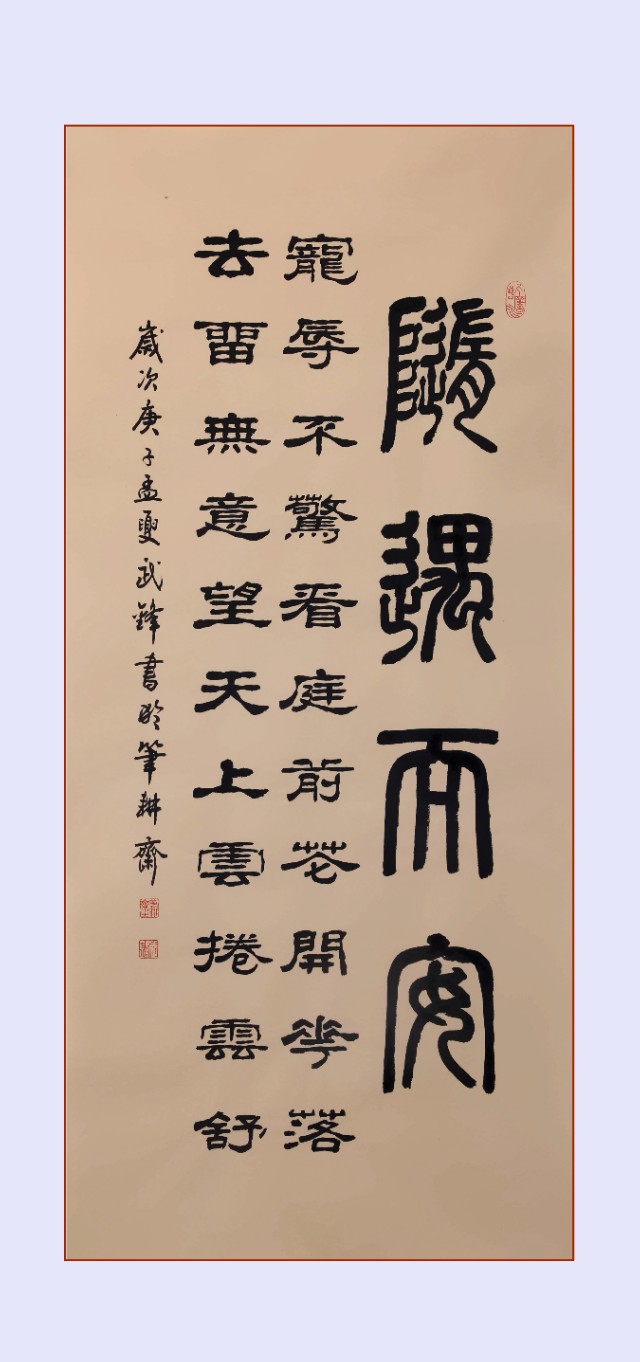 隨遇而安
寵辱不驚看庭前花開華落
去留無意望天上雲捲雲舒
歲次庚子孟夏武鋒書於筆耕齋